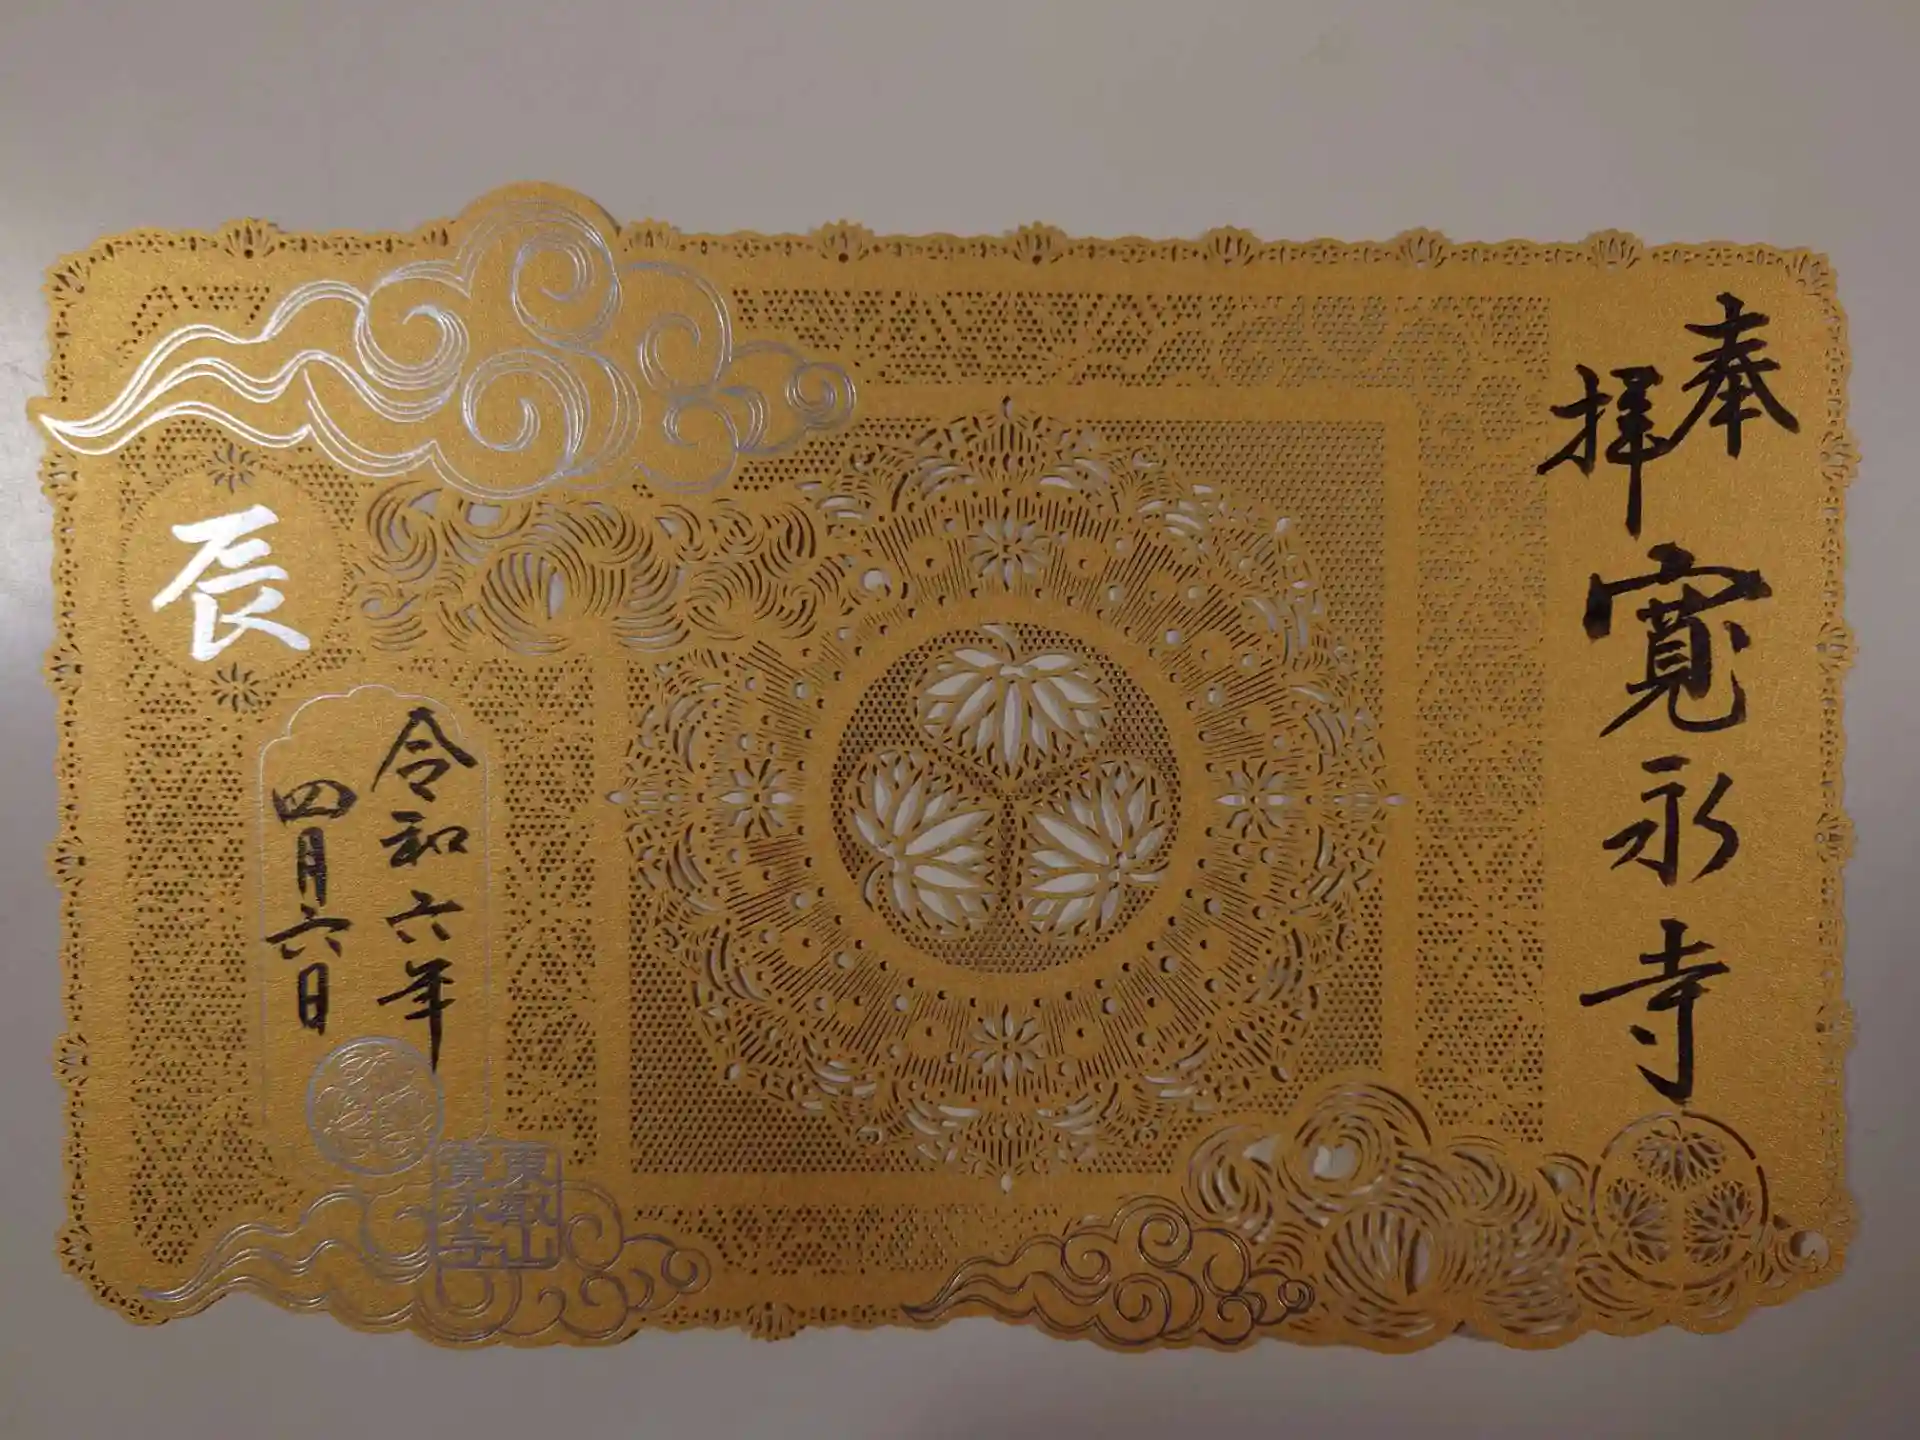 奉拝
寛永寺
辰
令和六年
四月六日
東叡山
寛永寺